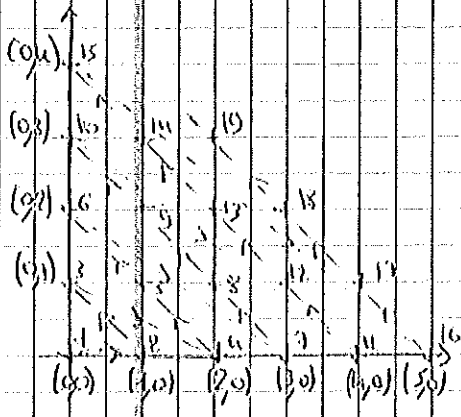 (0,4) 15
(0,3) 10 14 19
(0,2) 6 9 13 18
(0,1) 3 5 8 12 17
1 2 4 7 11 16
(0,0) (1,0) (2,0) (3,0) (4,0) (5,0)